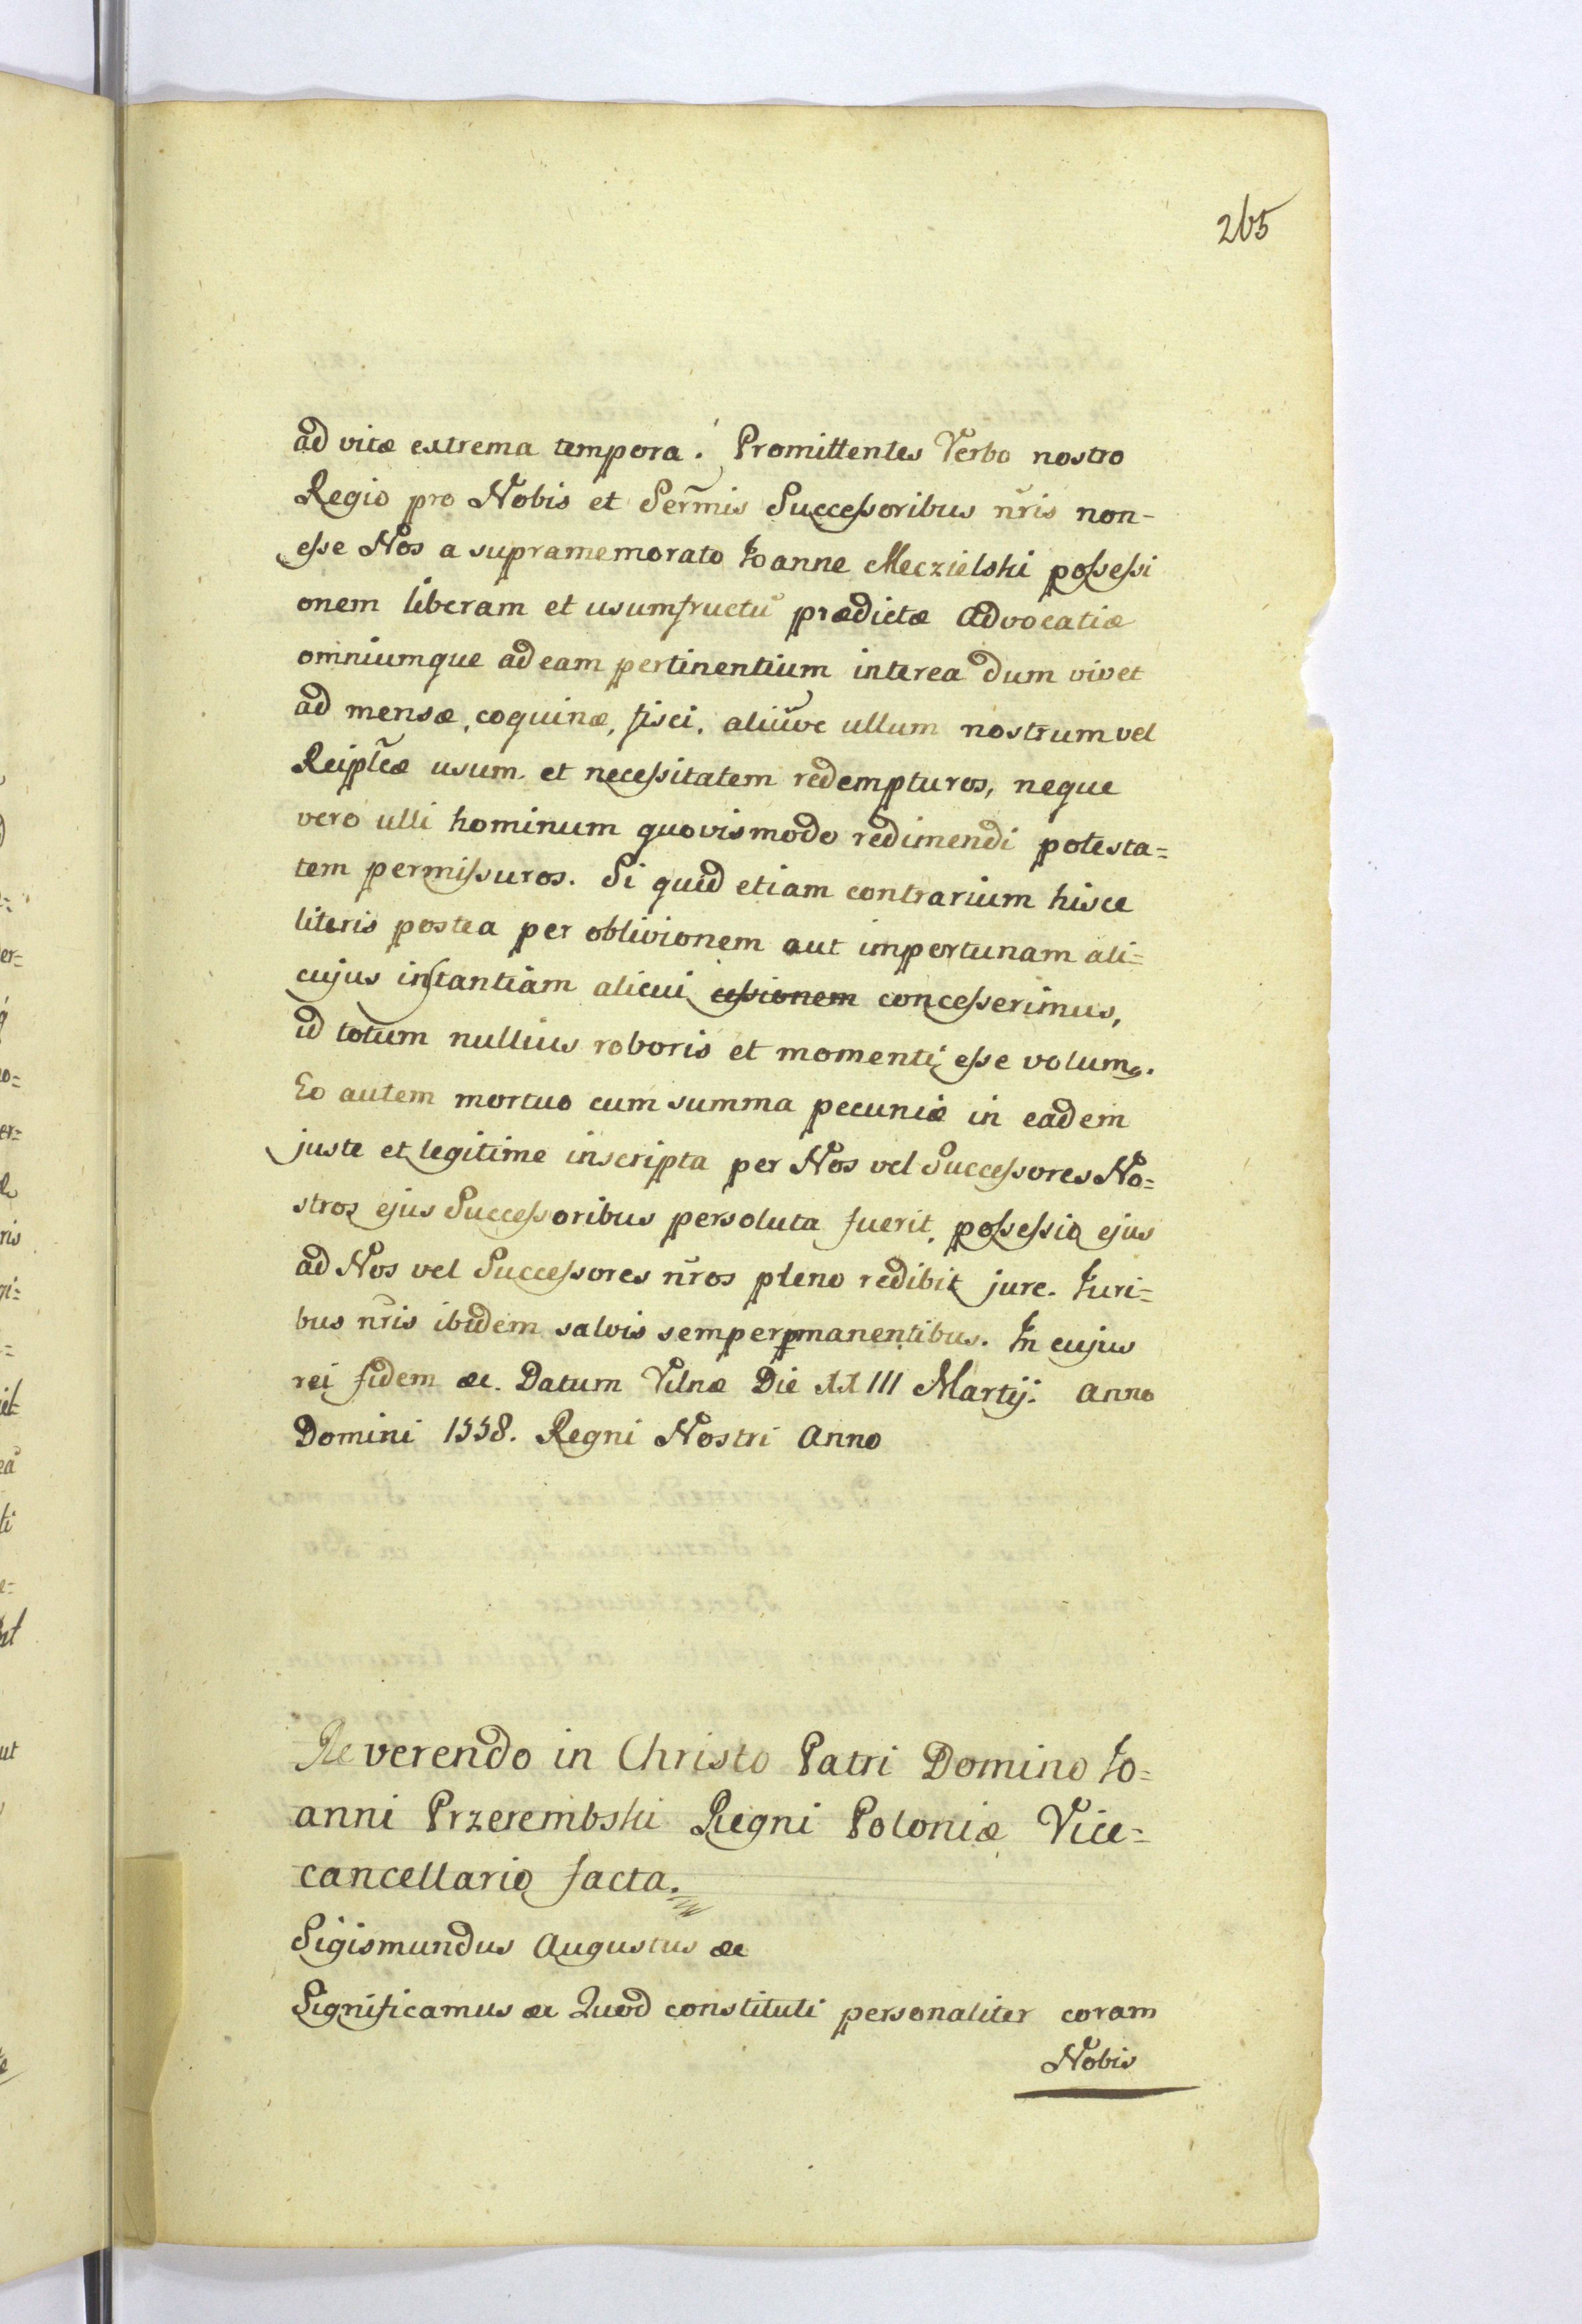 265
ad vitæ extrema tempora. Promittentes Verbo nostro
Regio pro Nobis et Serm̃is Successoribus nr̃is non-
esse Nos a supramemorato Ioanne Meczielski possessi
onem liberam et usumfructũ prædictæ Advocatiæ
omniumque ad eam pertinentium interea dum vivet
ad mensæ, coquinæ, fisci, aliũve ullum nostrum vel
Reiplc̃æ usum et necessitatem redempturos, neque
vero ulli hominum quovismodo redimendi potesta=
tem permissuros. Si quid etiam contrarium hisce
literis postea per oblivionem aut importunam ali=
cujus instantiam alicui cessionem concesserimus,
id totum nullius roboris et momenti esse volumꝯ.
Eo autem mortuo cum summa pecuniæ in eadem
juste et legitime inscripta per Nos vel Successores No=
stros ejus Successoribus persoluta fuerit, possessio ejus
ad Nos vel Successores nr̃os pleno redibit jure. Iuri=
bus nr̃is ibidem salvis semper pmanentibus. In cujus
rei fidem &c. Datum Vilnæ Die XXIII Martij. Anno
Domini 1558. Regni Nostri Anno
Reverendo in Christo Patri Domino Io=
anni Przerembski Regni Poloniæ Vice=
cancellario facta.
Sigismundus Augustus &c
Significamus &c Quod constituti personaliter coram
Nobis